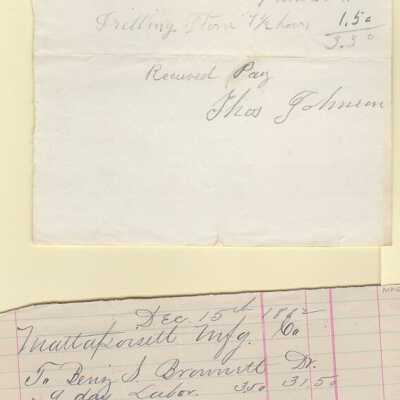 Drilling Stone 7½ hours 1.50
3.30
Received Pay
Thos Johnson
Dec 15th
Mattapoisett Mfg. Co
To Benj S. Brownell Dr.
9 day Labor. 350 31.50